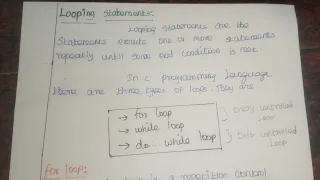 Looping statements:
Looping statements are the
statements execute one or more statements
repeatly until some end condition is met.
In c programming language
there are three types of loops. They are
→ for loop
→ while loop } Entry controlled loop
→ do... while loop } Exit controlled loop
for loop:
is a repetition control